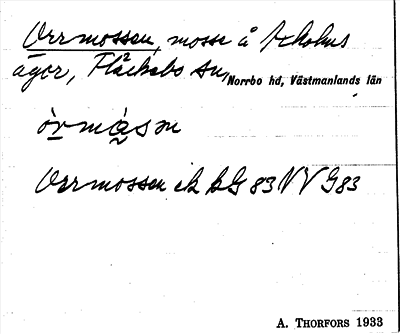 Orrmossen, mosse å
ägor, Fläckebo sn,
Norrbo hd, Västmanlands län
Orrmossen ek bG 83 NV G83
A. THORFORS 1933